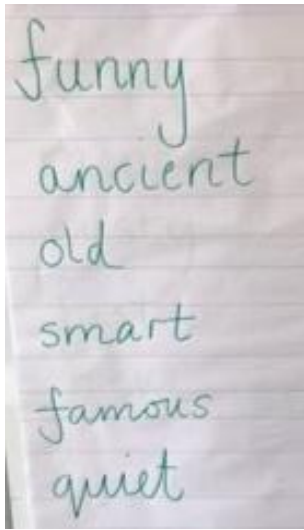 funny
ancient
old
smart
famous
quiet